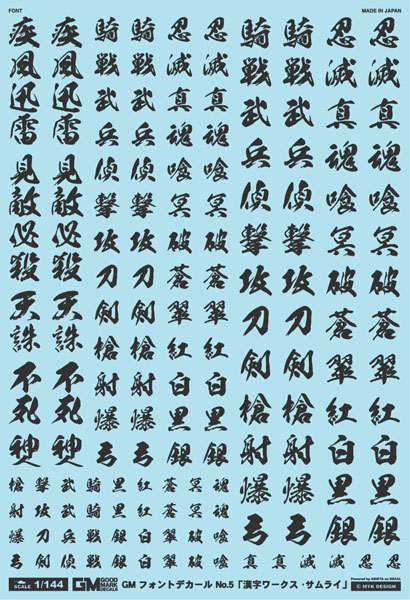 FONT
MADE IN JAPAN
疾風迅雷見敵必殺天誅不死神
疾風迅雷見敵必殺天誅不死神
騎戦武兵偵撃攻刀剣槍射爆弓
騎戦武兵偵撃攻刀剣槍射爆弓
忍滅真魂喰冥破蒼翠紅白黒銀
忍滅真魂喰冥破蒼翠紅白黒銀
騎戦武兵偵撃攻刀剣槍射爆弓
騎戦武兵偵撃攻刀剣槍射爆弓
忍滅真魂喰冥破蒼翠紅白黒銀
忍滅真魂喰冥破蒼翠紅白黒銀
槍 撃 武 騎 黒 紅 蒼 冥 魂
爆 刀 兵 戦 銀 白 翠 破 喰
弓 剣 偵 戦 銀 白 翠 破 喰 真 真 滅 滅 忍 忍
SCALE 1/144 GM GOOD MARK DECALS GM フォントデカール No.5「漢字ワークス・サムライ」
© MYK DESIGN